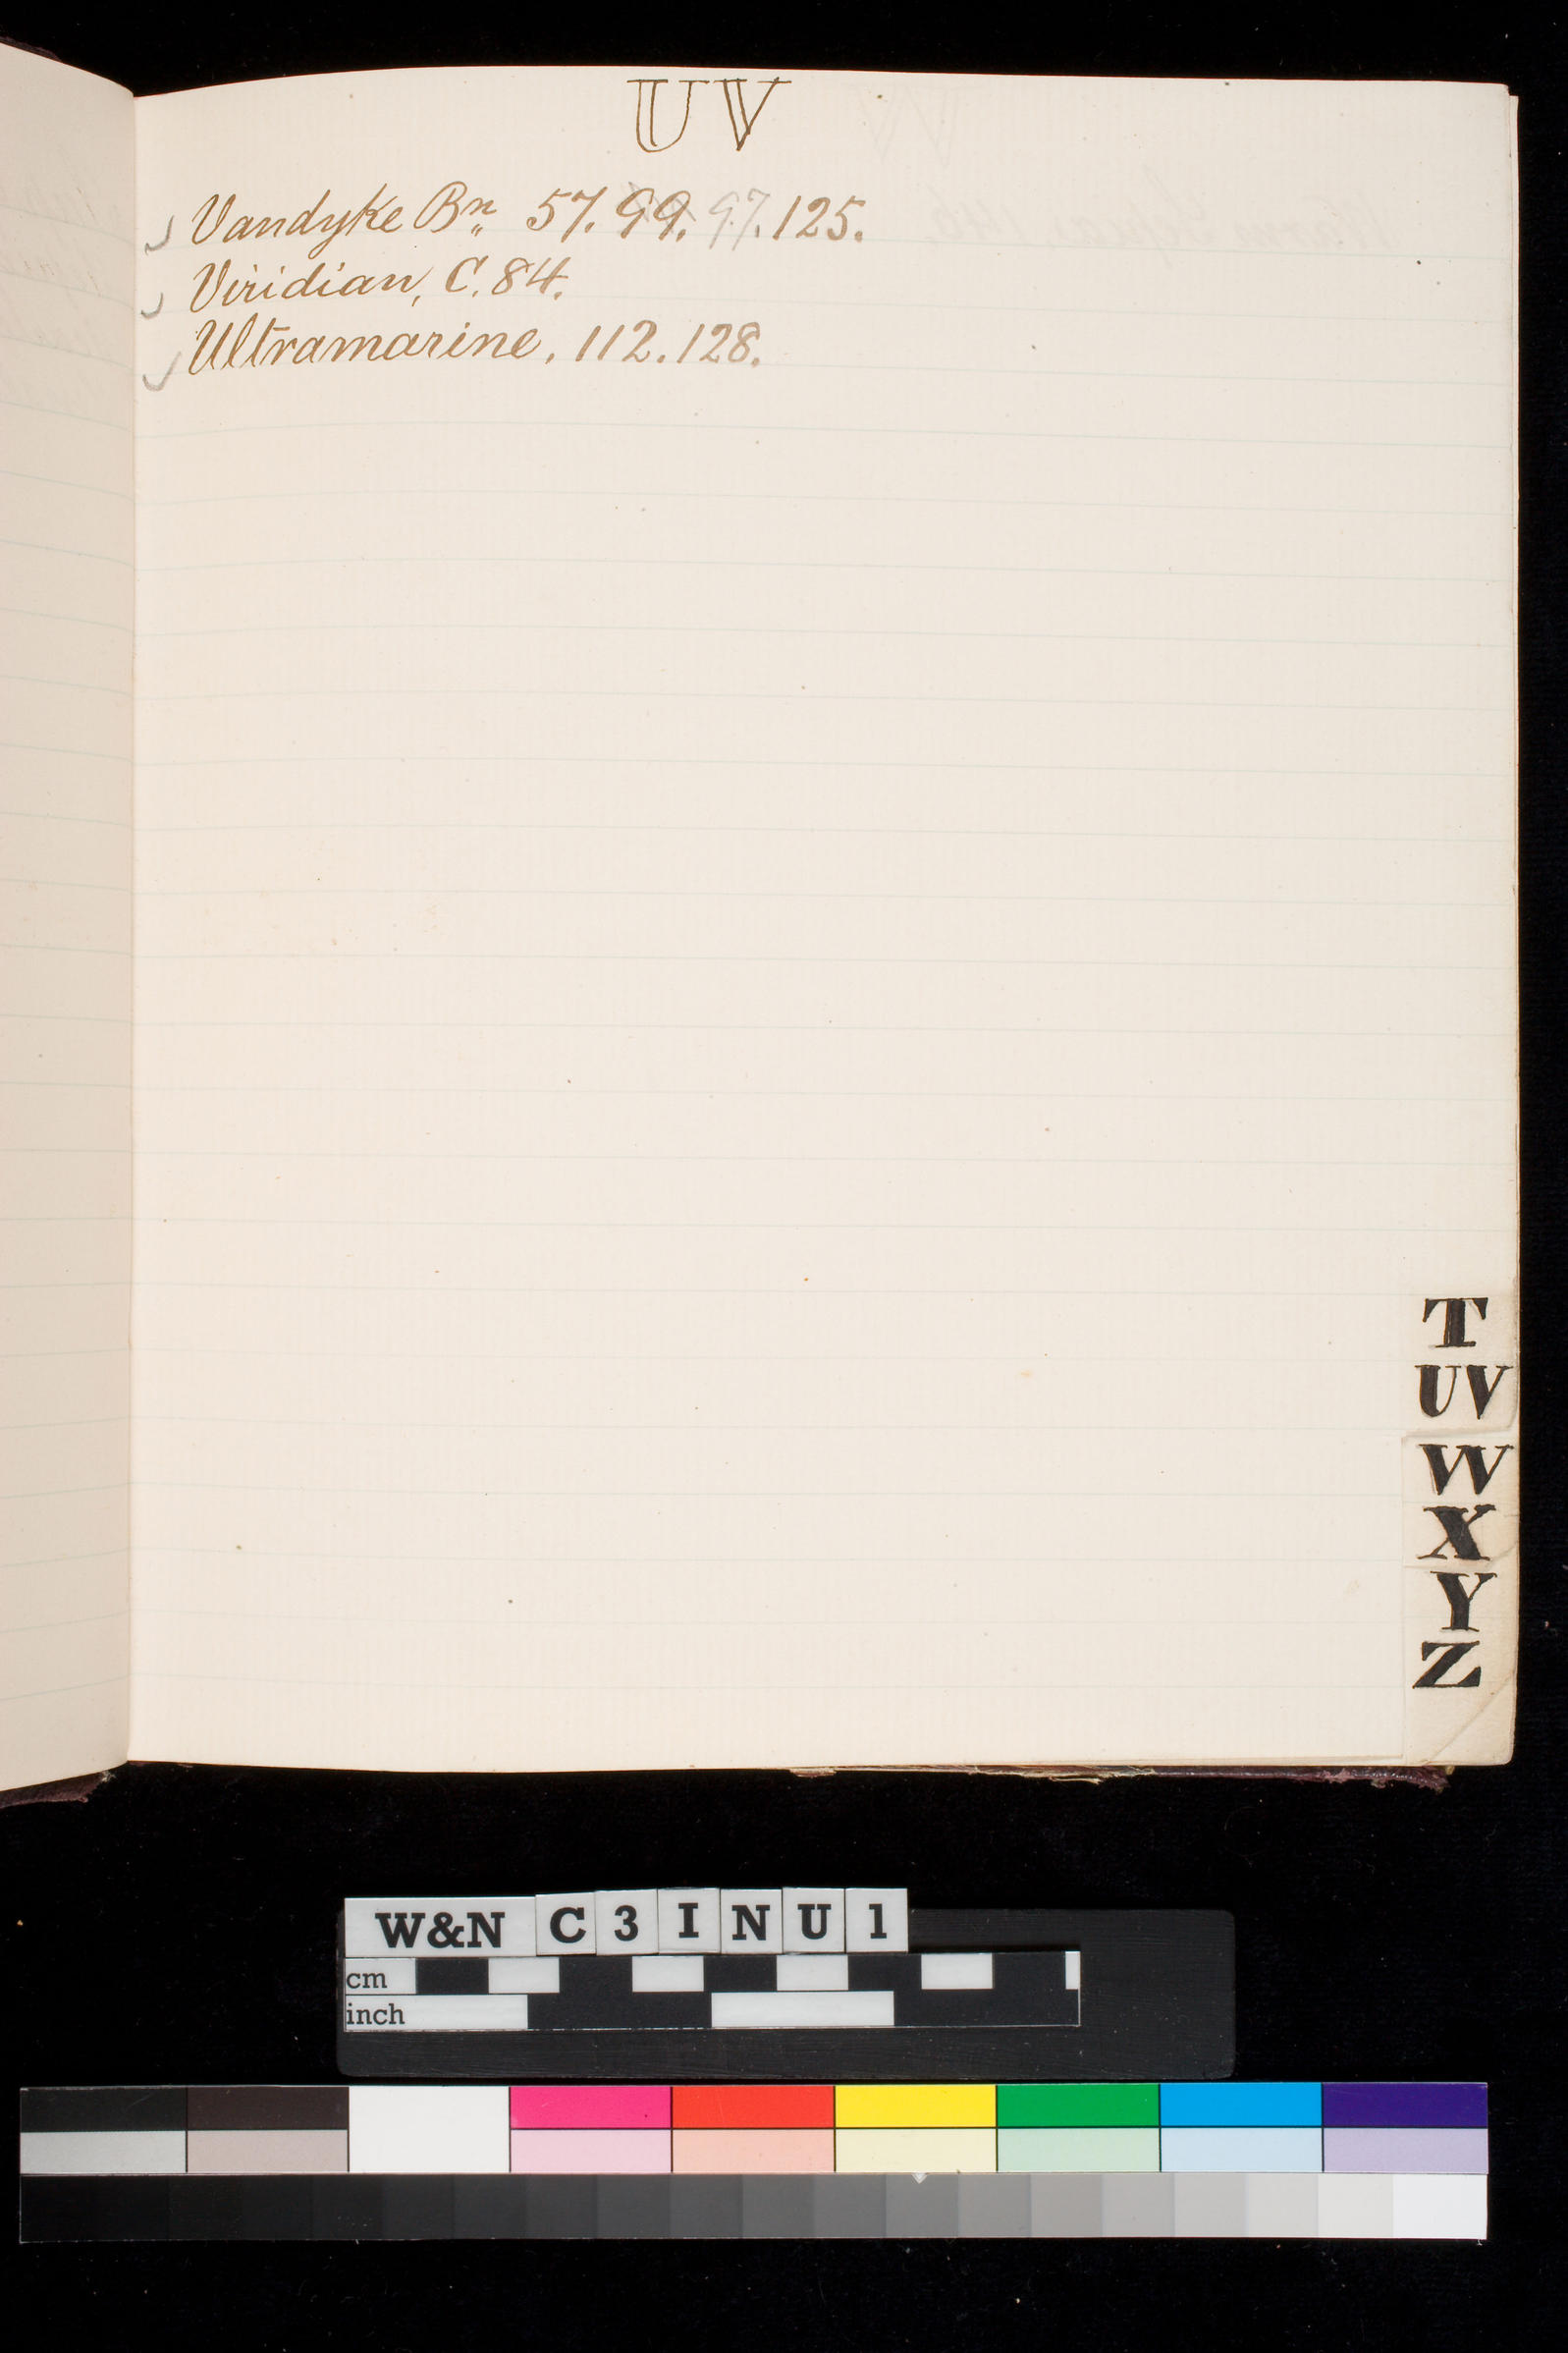 UV
Vandyke Bn 57. 99. 97. 125.
Viridian, C. 84.
Ultramarine. 112. 128.
T
UV
W
X
Y
Z
W&N C 3 I N U 1
cm
inch